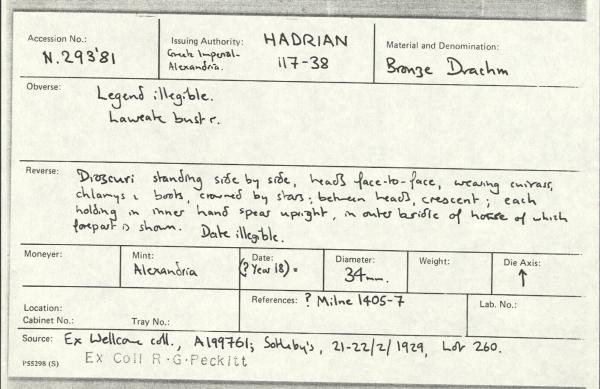 Accession No.:
N.293'81
Issuing Authority: HADRIAN
Greek Imperial-
Alexandria. 117-38
Material and Denomination:
Bronze Drachm
Obverse: Legend illegible.
Laureate bust r.
Reverse: Dioscuri standing side by side, heads face-to-face, wearing cuirass,
chlamys & boots, crowned by stars; between heads, crescent; each
holding in inner hand spear upright, in outer bridle of horse of which
forepart is shown. Date illegible.
Moneyer:
Mint:
Alexandria
Date:
(? Year 18) =
Diameter:
34mm.
Weight:
Die Axis:
↑
Location:
Cabinet No.: Tray No.:
References: ? Milne 1405-7
Lab. No.:
Source: Ex Wellcome coll., A199761; Sotheby's, 21-22/2/1929, Lot 260.
P55298 (S) Ex Coll R.G.Peckitt